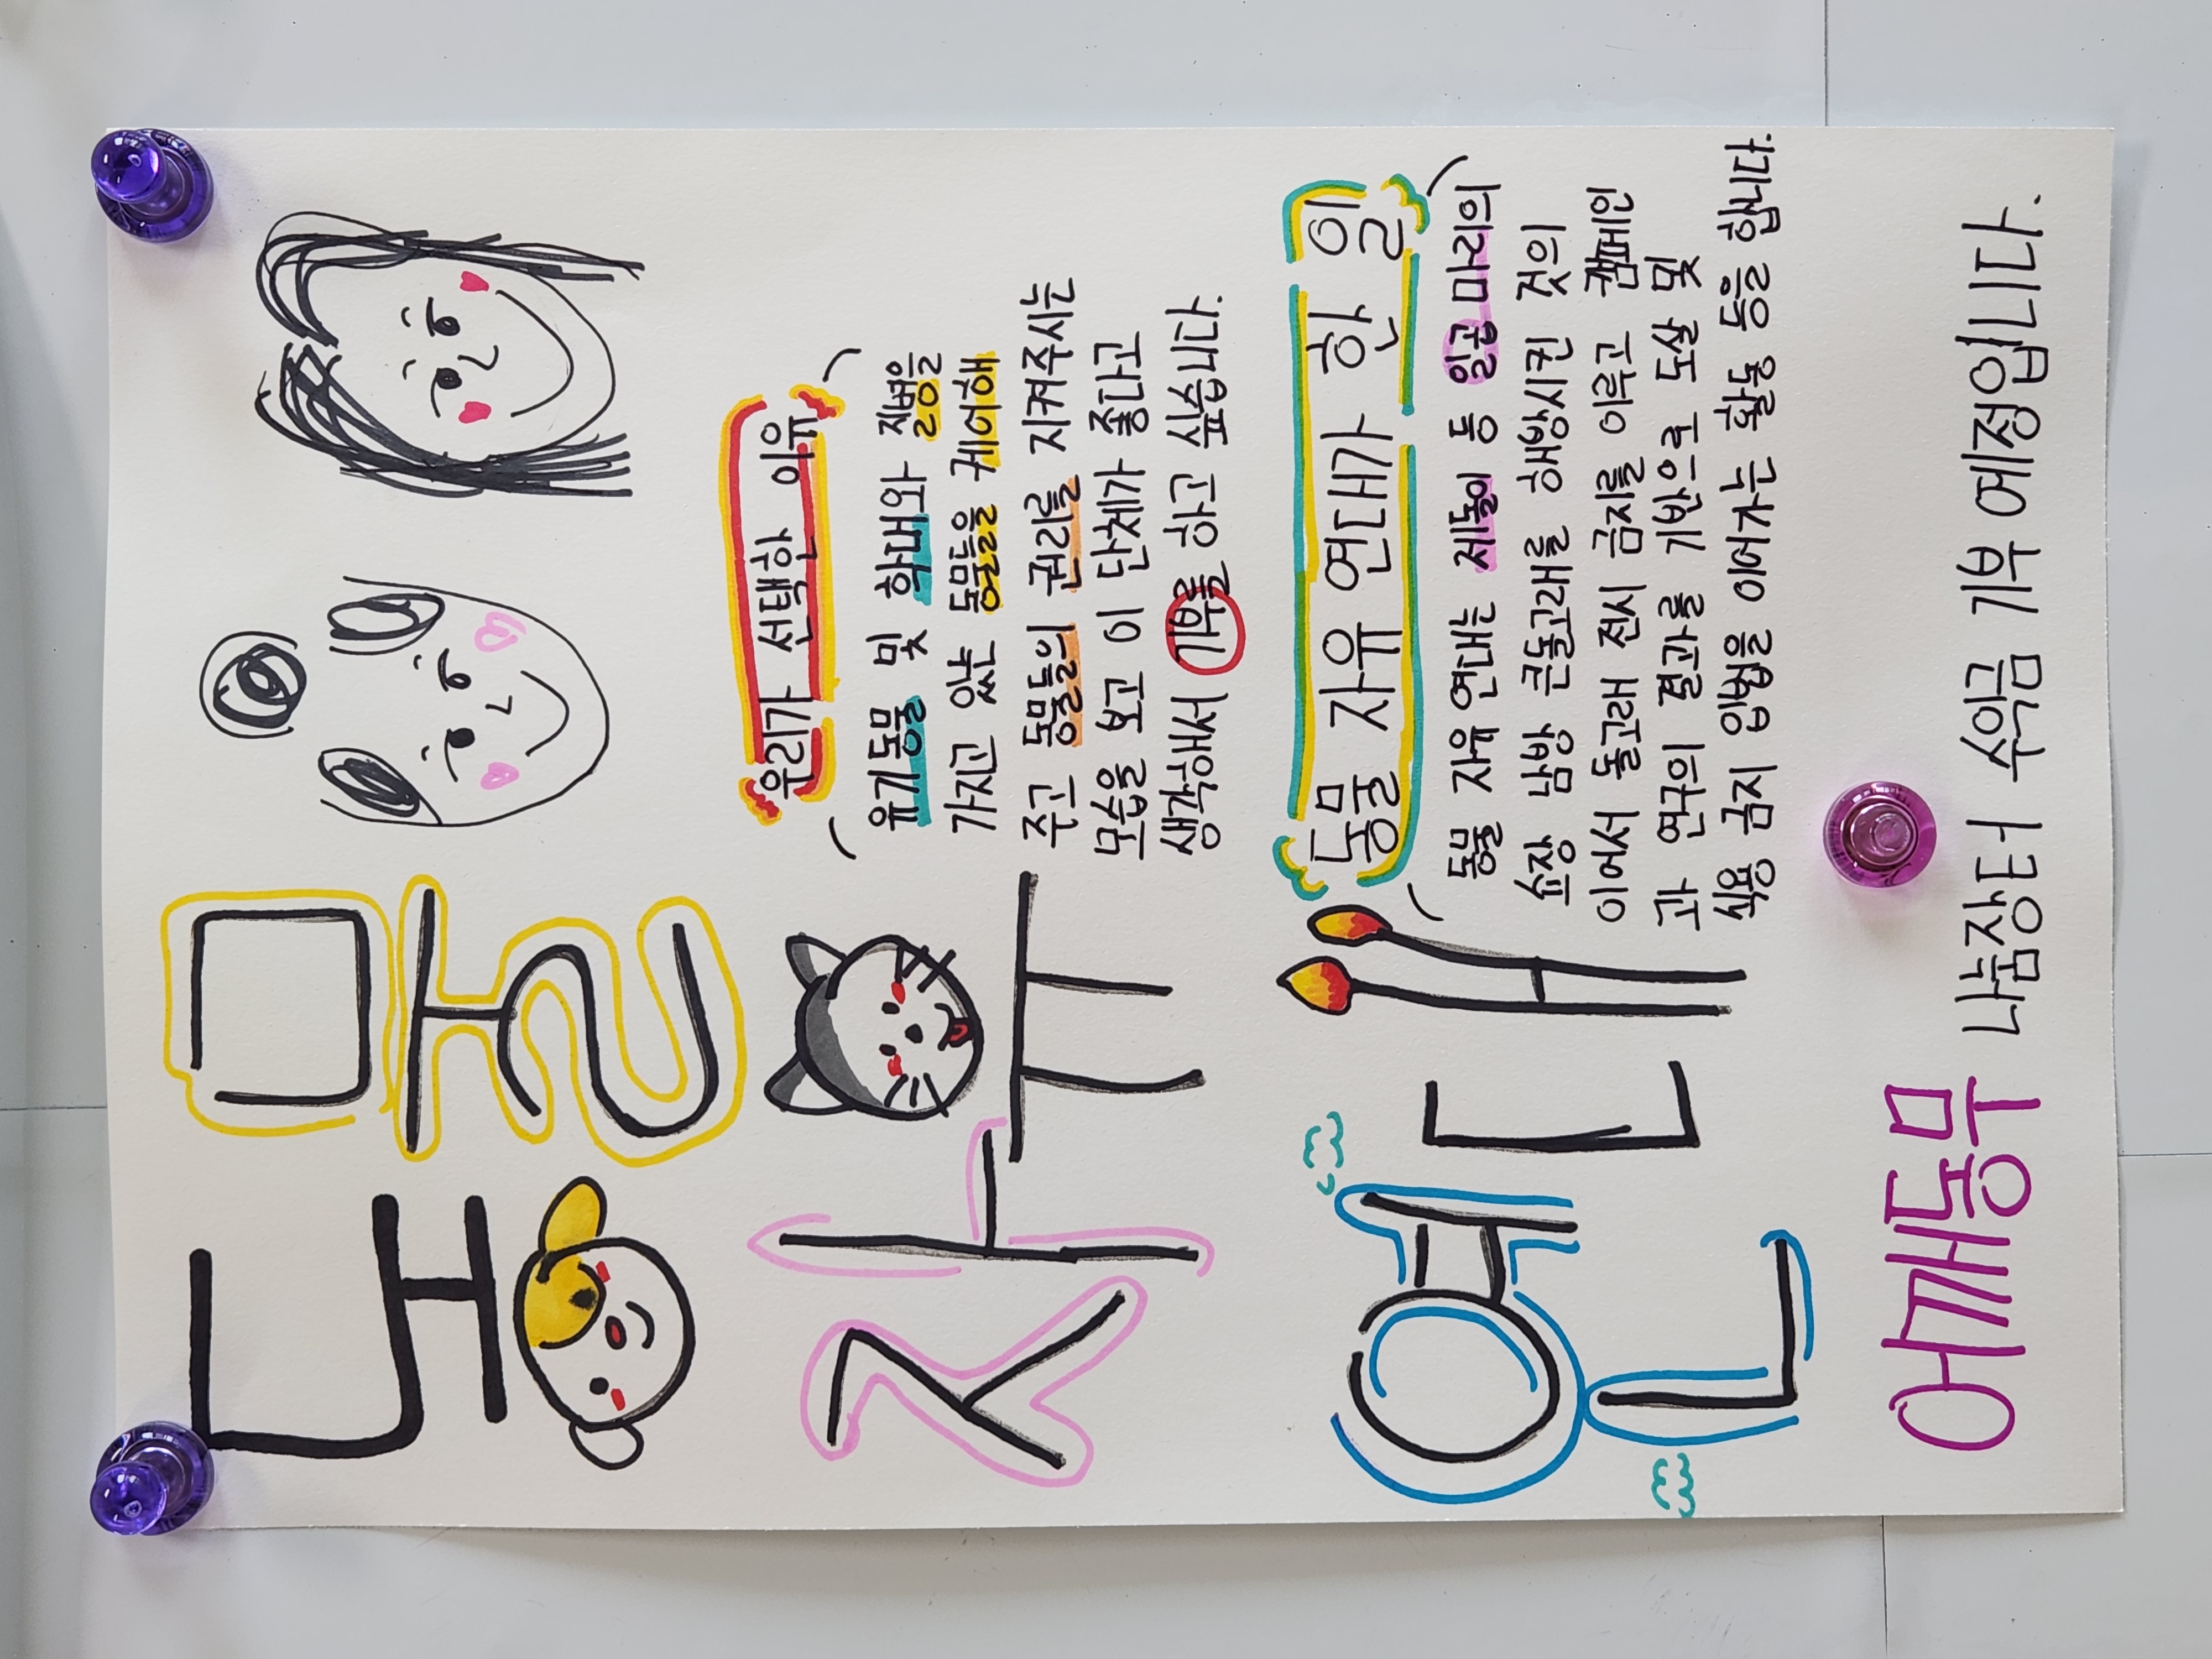 동물
자유
연대
우리가 선택한 이유
유기동물 및 학대와 질병을
가지고 있는 동물들을 케어해
주고 동물들의 권리를 지켜주시는
모습을 보고 이 단체가 좋다고
생각해서 기부를 하고 싶습니다.
동물 자유 연대가 한 일
동물 자유 연대는 제돌이 등 일곱 마리의
쇼장 남방 큰돌고래를 해방시킨 것의
이어서 돌고래 전시 금지를 이루고 캠페인
과 연구의 결과를 기반으로 도살 및
식용 금지 입법을 이어가는 활동 등을 합니다.
어깨동무 나눔장터 수익금 기부 예정입니다.